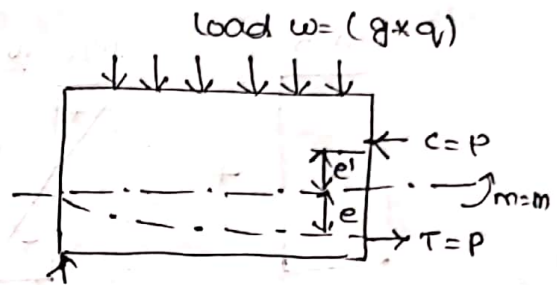 load w= (g*q)
C=P
e'
m=m
e
T=P